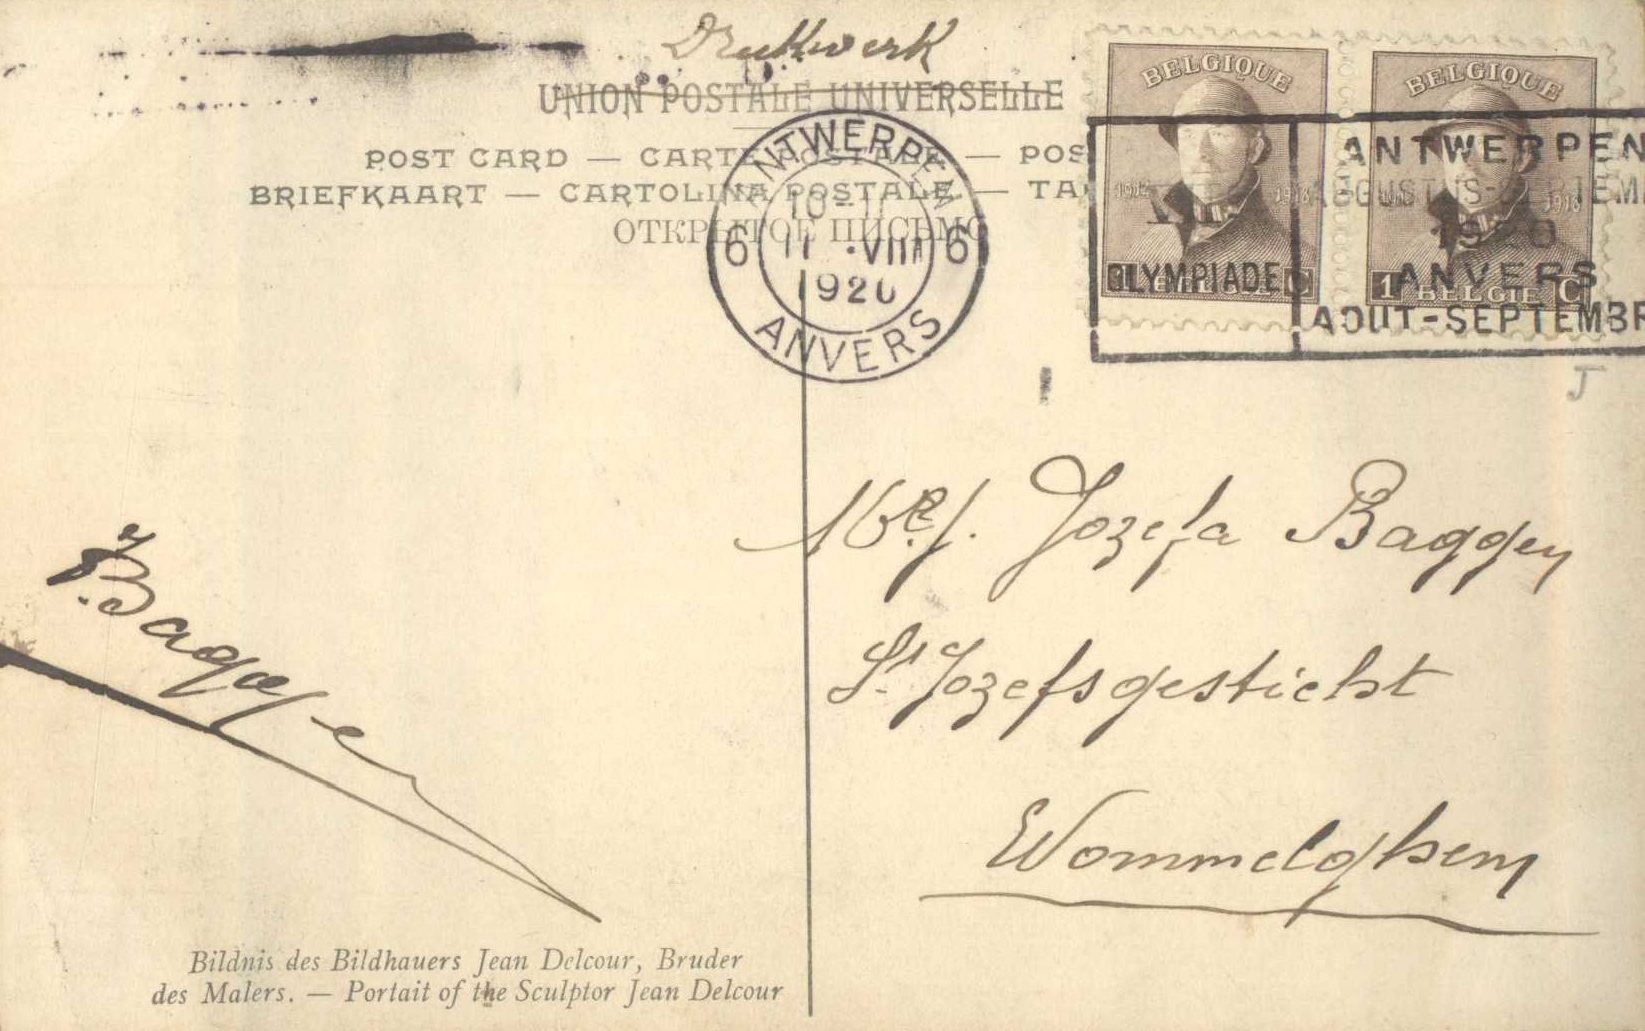 Drukwerk
UNION POSTALE UNIVERSELLE
POST CARD — CARTE POSTALE — POS
BRIEFKAART — CARTOLINA POSTALE — TA
ОТКРЫТОЕ ПИСЬМО
ANTWERPEN
10-11
6 11 ·VIII 6
1920
ANVERS
BELGIQUE
1918
1 C
BELGIQUE
1918
1 BELGIE C
OLYMPIADE
ANTWERPEN
AUGUSTUS-SEPTEM
1920
ANVERS
AOUT-SEPTEMBR
J
Jozefa Baggen
St Jozefsgesticht
Wommelghem
Baggen
Bildnis des Bildhauers Jean Delcour, Bruder
des Malers. — Portait of the Sculptor Jean Delcour